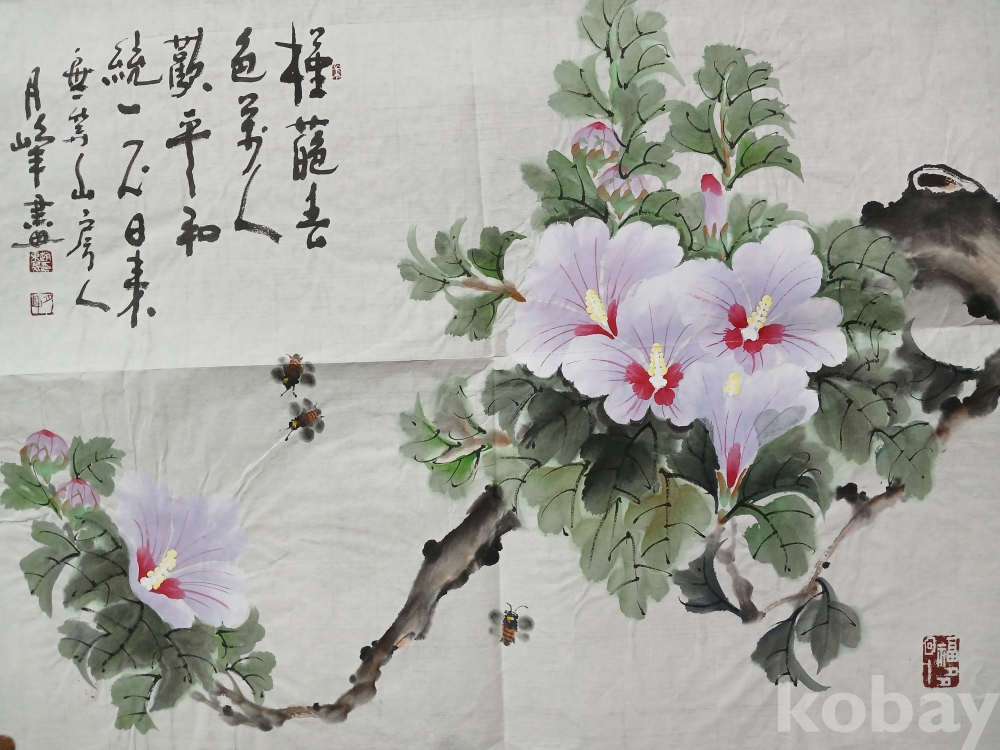 槿葩春
色萬人
歡平和
統一人日來
無等山房人
月峰畫
kobay